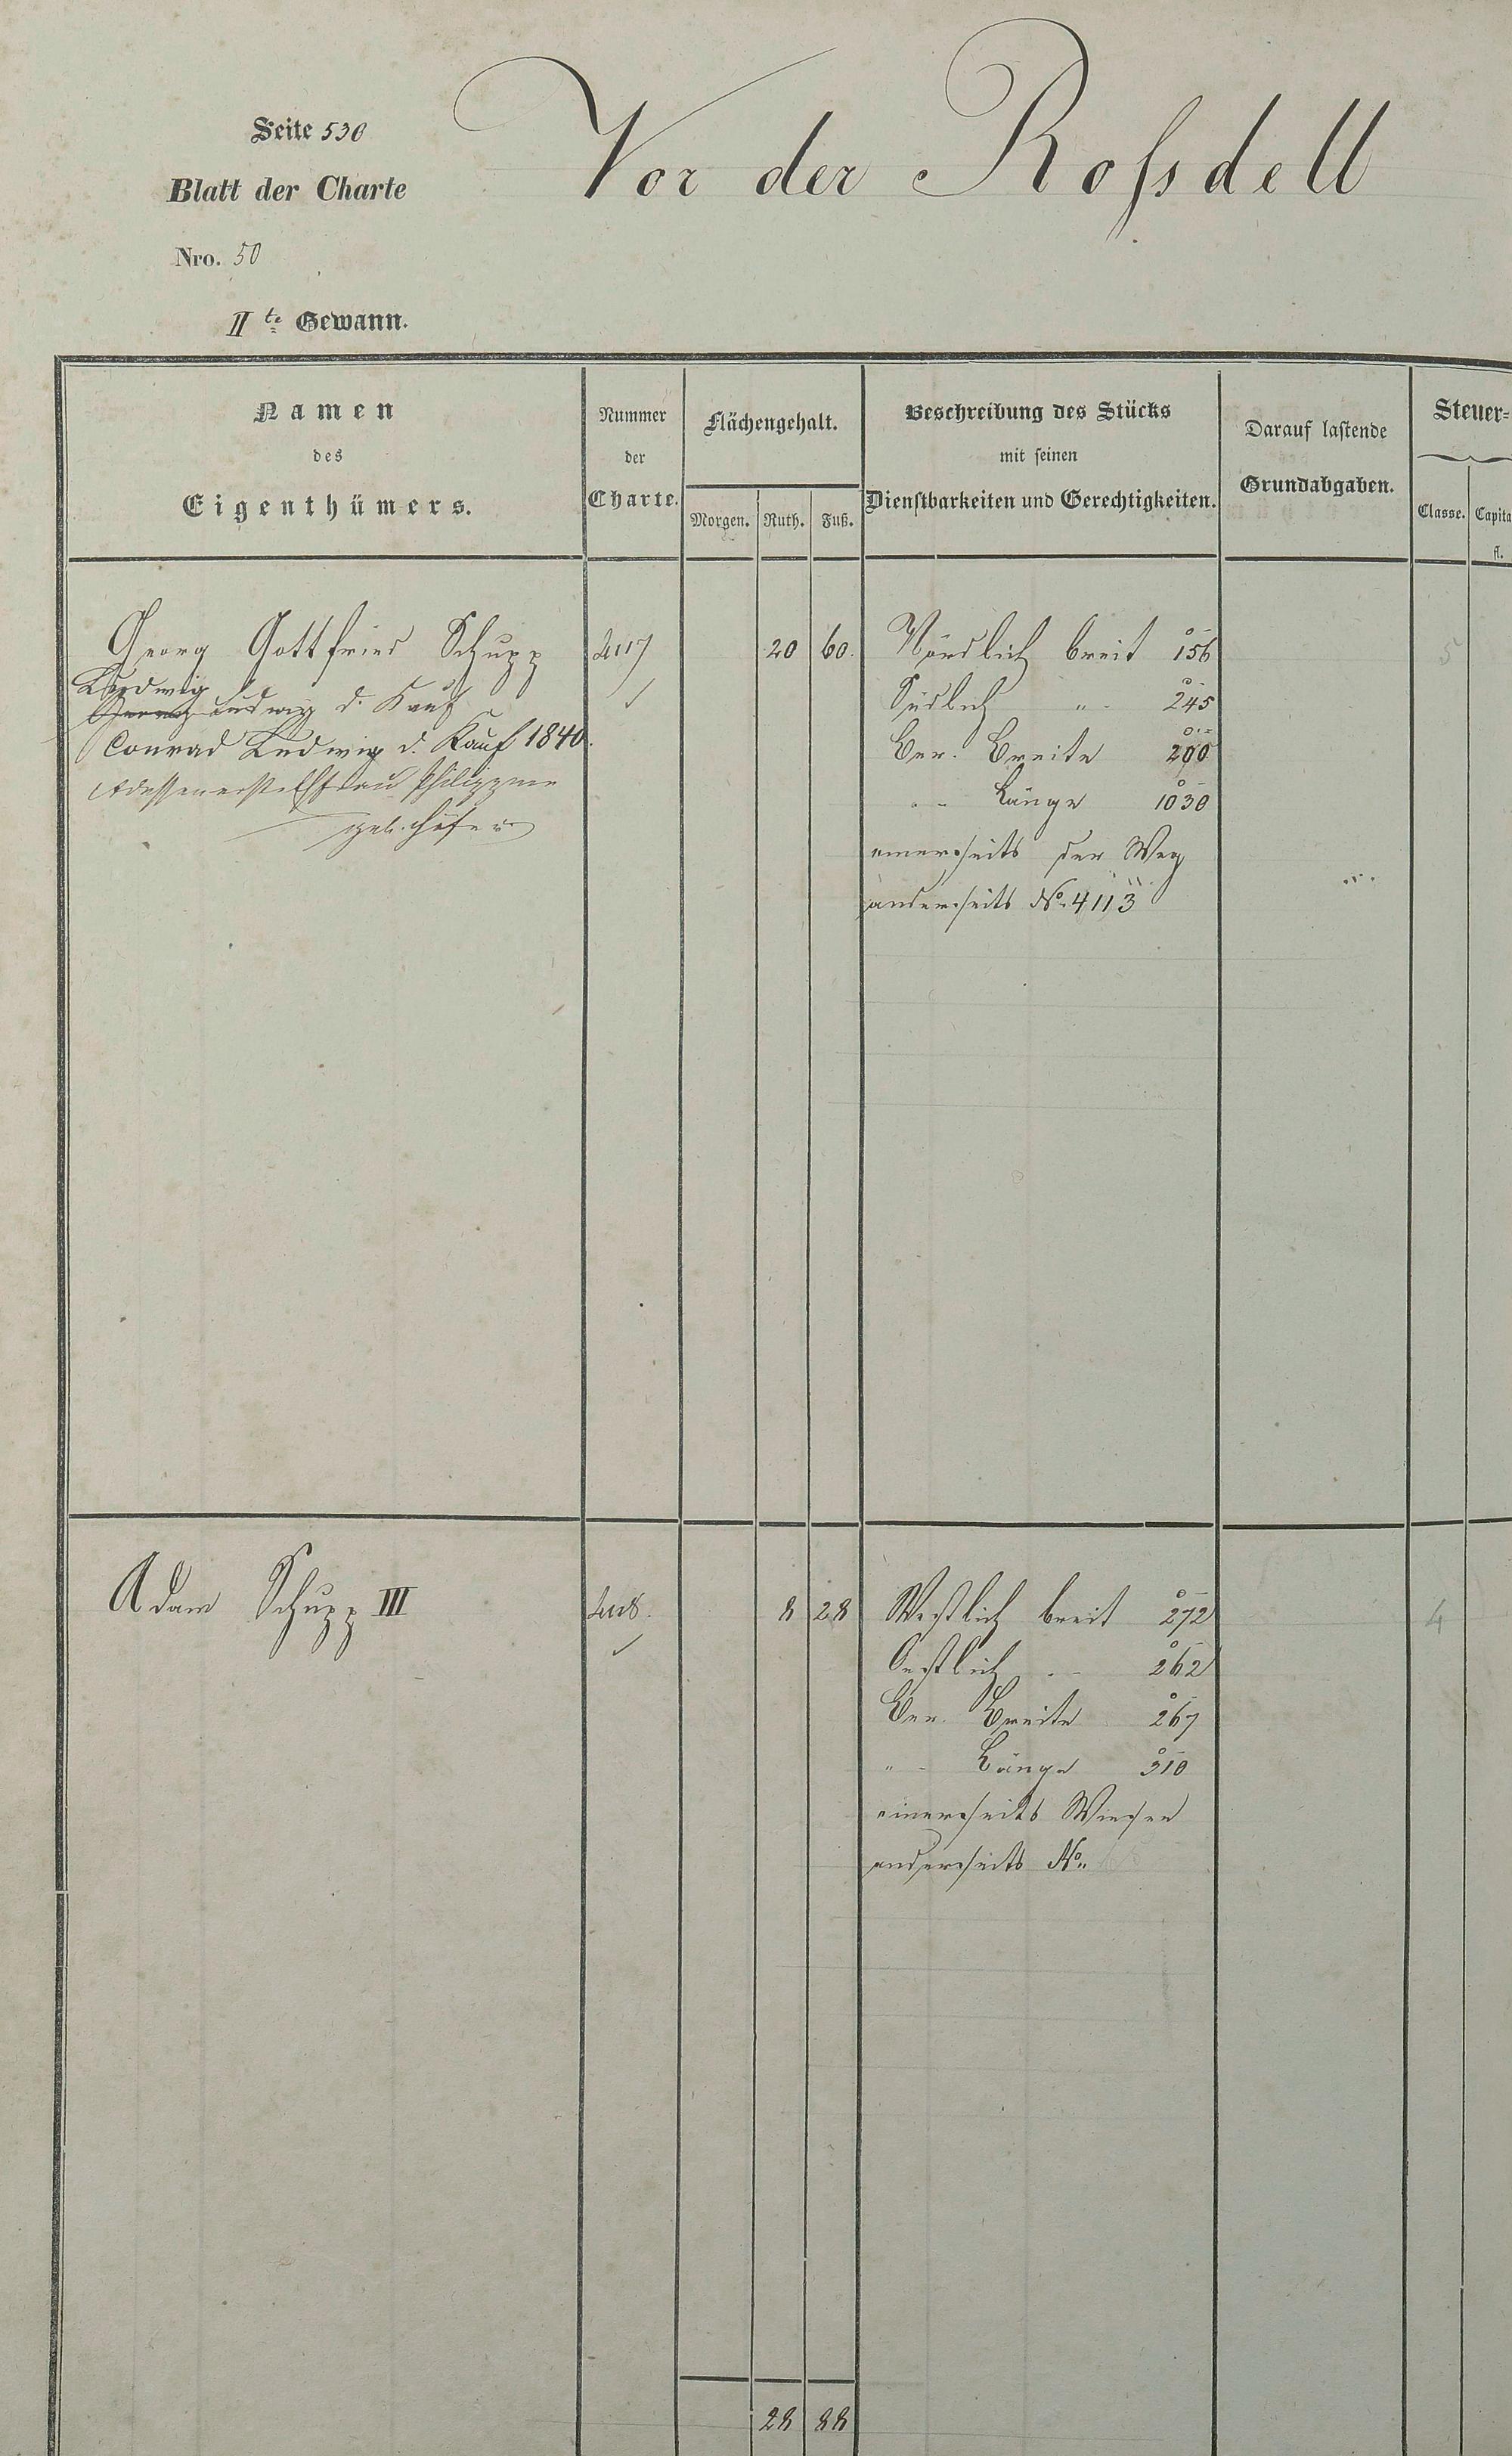 Vor der Roſsdell
Seite 530
Blatt der Charte
Nro. 50
IIte Gewann.
Namen
des
Eigenthümers.
Nummer
der
Charte.
Flächengehalt.
Morgen. Ruth. Fuß.
Beschreibung des Stücks
mit seinen
Dienstbarkeiten und Gerechtigkeiten.
Darauf lastende
Grundabgaben.
Steuer=
Classe. Capita
fl.
Georg Gottfried Schupp 4117 20 60. Nördlich breit 156 5
Ludwig
Ludwig d. Kauf
Südlich " 245
Conrad Ludwig d. Kauf 1840.
Ver. Breite 200
Philippine
" Länge 1030
geb. Höfer
einerseits der Weg
anderseits No. 4113
Adam Schupp III 4118. 8 28 Westlich breit 272 4
Oestlich " 262
Ver. Breite 267
" Länge 310
einerseits Wiesen
anderseits No.
28 88